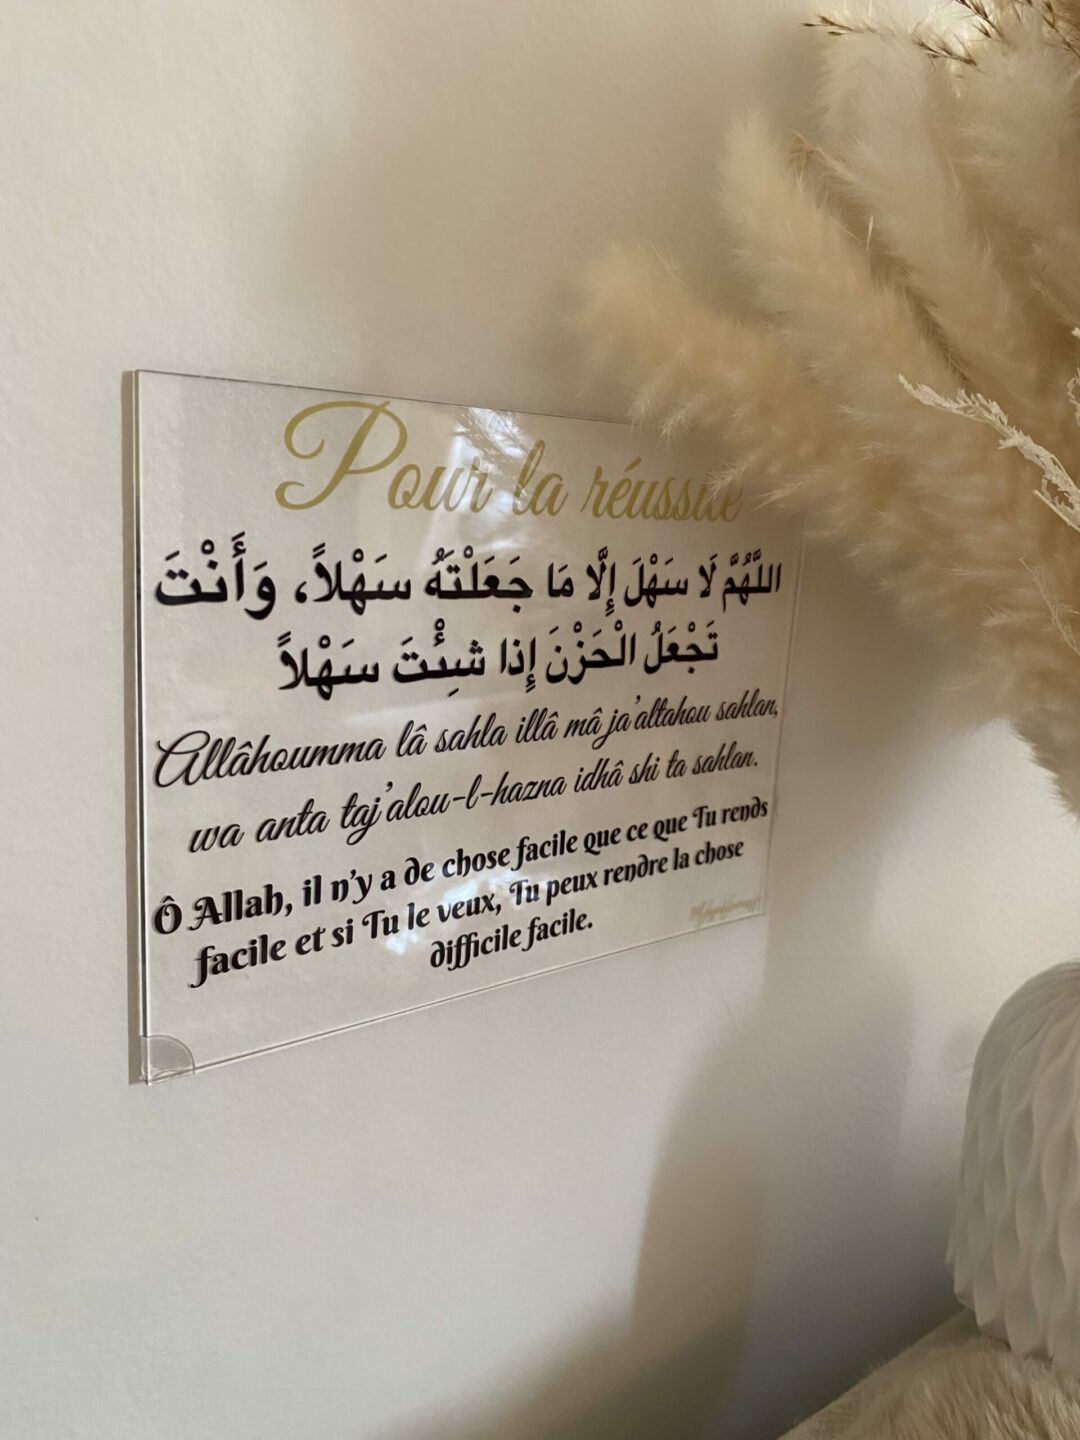 Pour la réussite
اللَّهُمَّ لَا سَهْلَ إِلَّا مَا جَعَلْتَهُ سَهْلاً، وَأَنْتَ
تَجْعَلُ الْحَزْنَ إِذا شِئْتَ سَهْلاً
Allâhoumma lâ sahla illâ mâ ja'altahou sahlan,
wa anta taj'alou-l-hazna idhâ shi ta sahlan.
Ô Allah, il n'y a de chose facile que ce que Tu rends
facile et si Tu le veux, Tu peux rendre la chose
difficile facile.